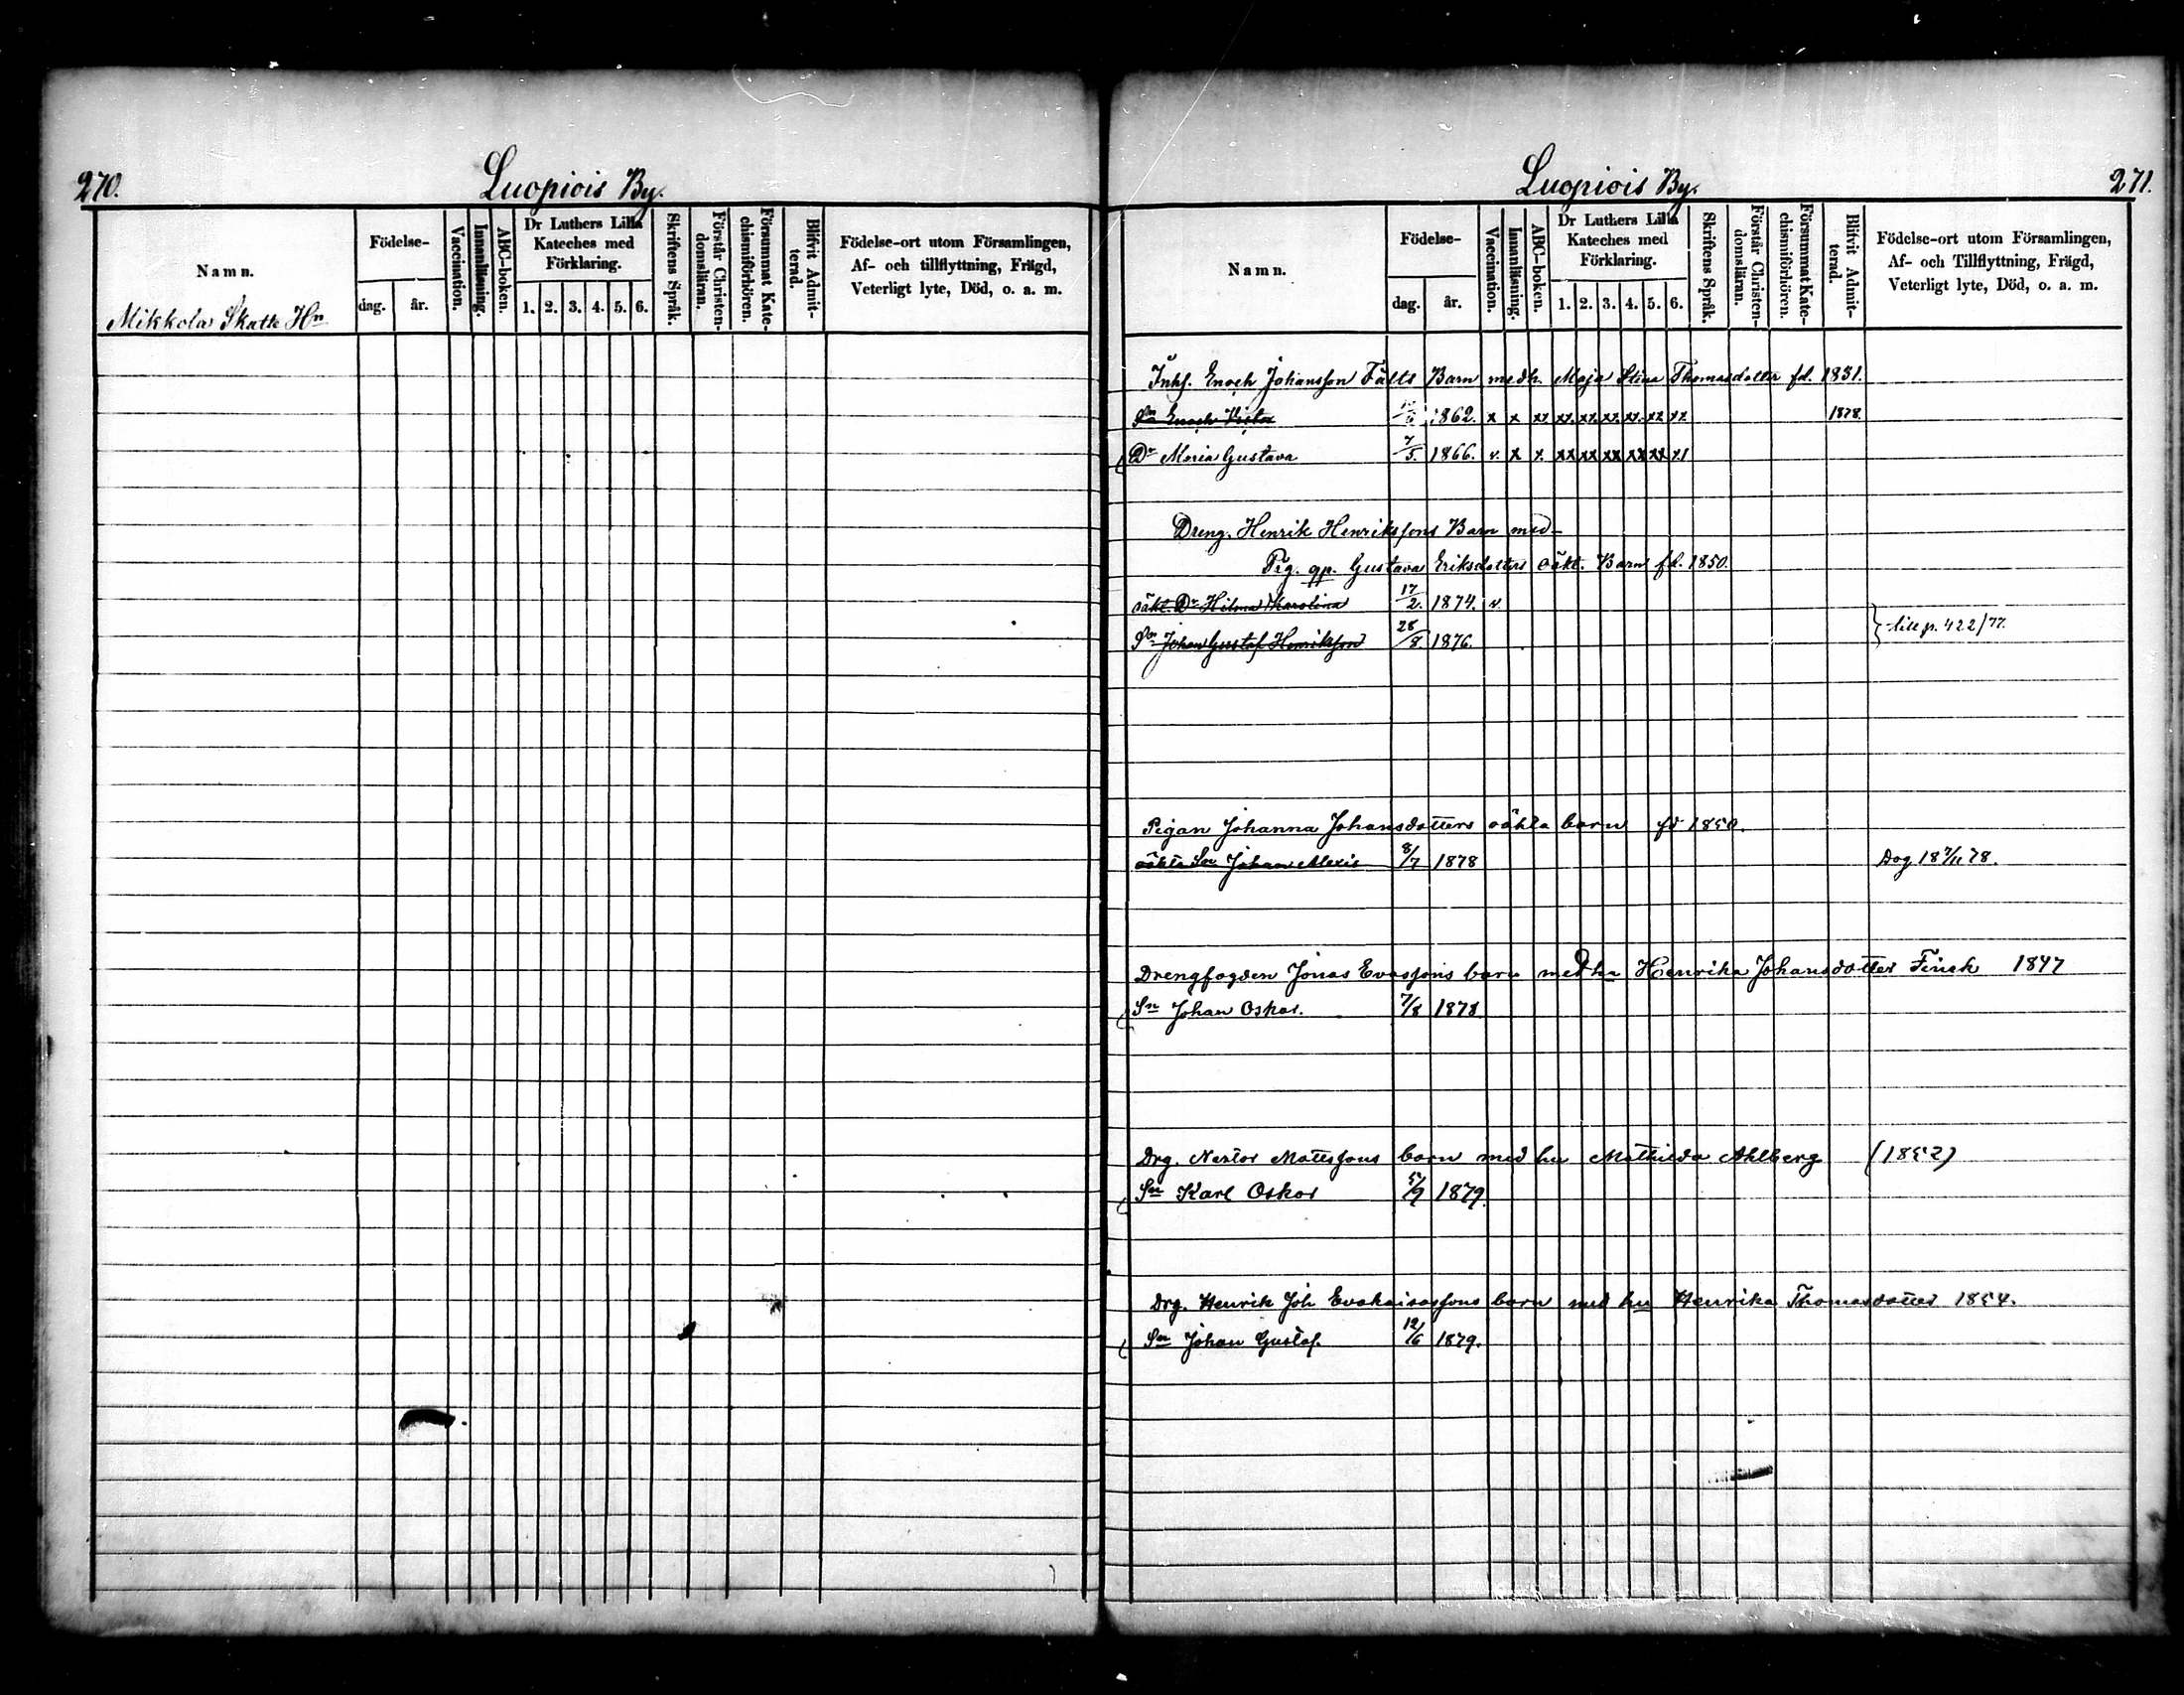 270.
Luopiois By.
Namn.
Födelse-
dag.
år.
Vaccination.
Innanläsning.
ABC-boken.
Dr Luthers Lilla
Kateches med
Förklaring.
1. 2. 3. 4. 5. 6.
Skriftens Språk.
Förstår Christen-
domsläran.
Försummat Kate-
chismiförhören.
Blifvit Admit-
terad.
Födelse-ort utom Församlingen,
Af- och tillflyttning, Frägd,
Veterligt lyte, Död, o. a. m.
Mikkola Skatte Hn
Luopiois By.
271.
Namn.
Födelse-
dag.
år.
Vaccination.
Innanläsning.
ABC-boken.
Dr Luthers Lilla
Kateches med
Förklaring.
1. 2. 3. 4. 5. 6.
Skriftens Språk.
Förstår Christen-
domsläran.
Försummat Kate-
chismiförhören.
Blifvit Admit-
terad.
Födelse-ort utom Församlingen,
Af- och Tillflyttning, Frägd,
Veterligt lyte, Död, o. a. m.
Inhs. Enoch Johansson Fälts Barn med h. Maja Stina Thomasdotter fd. 1831.
Sn Enoch Victor 1862. x x xx. xx. xx. xx. xx. xx xx 1878.
Dr Maria Gustava 7/5. 1866. v. x x. xx xx xx xx xx x1
Dreng. Henrik Henrikssons Barn med
Pig. qp. Gustava Eriksdotters oäkt. Barn fd. 1850.
oäkt. Dr Hilma Karolina 17/2. 1874. v.
Sn Johan Gustaf Henriksson 28/8. 1876. till p. 422/77.
Pigan Johanna Johansdotters oäkta barn fd 1850.
oäkta Sn Johan Alexis 8/7 1878 Dog 18 7/11 78.
Drengfogden Jonas Evassons barn med hu Henrika Johansdotter Finck 1847
Sn Johan Oskar. 7/8 1878
Drg. Nestor Mattssons barn med hu Mathilda Ahlberg (1852)
Sn Karl Oskar 5/9 1879.
Drg. Henrik Joh Evakaisassons barn med hu Henrika Thomasdotter 1854.
Sn Johan Gustaf. 12/6 1879.